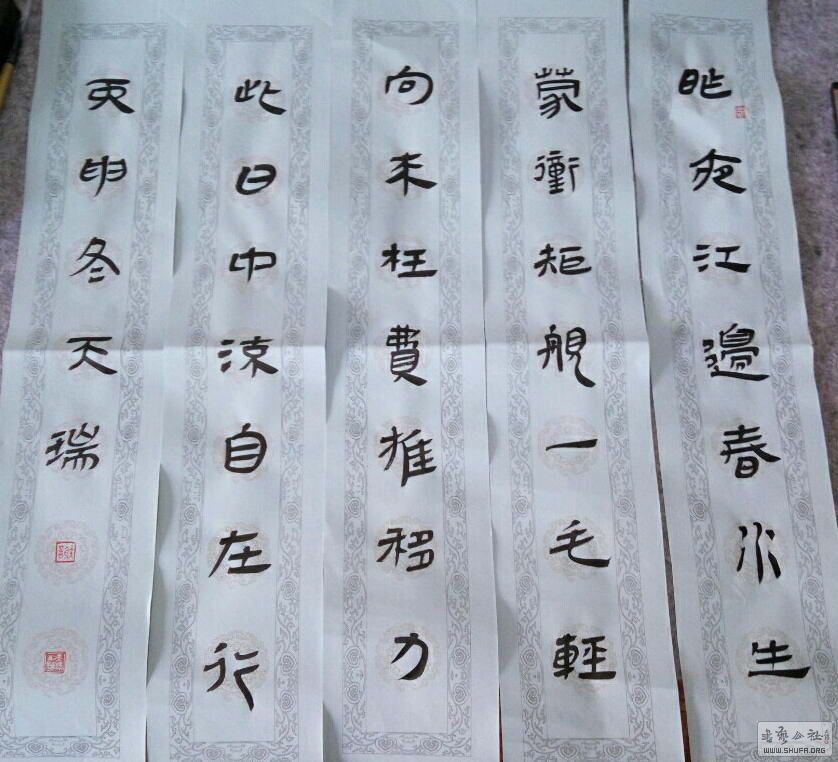 昨夜江邊春水生
蒙衝矩舰一毛輕
向未枉費推移力
此日中涼自在行
丙申冬天瑞
书艺公社
WWW.SHUFA.ORG